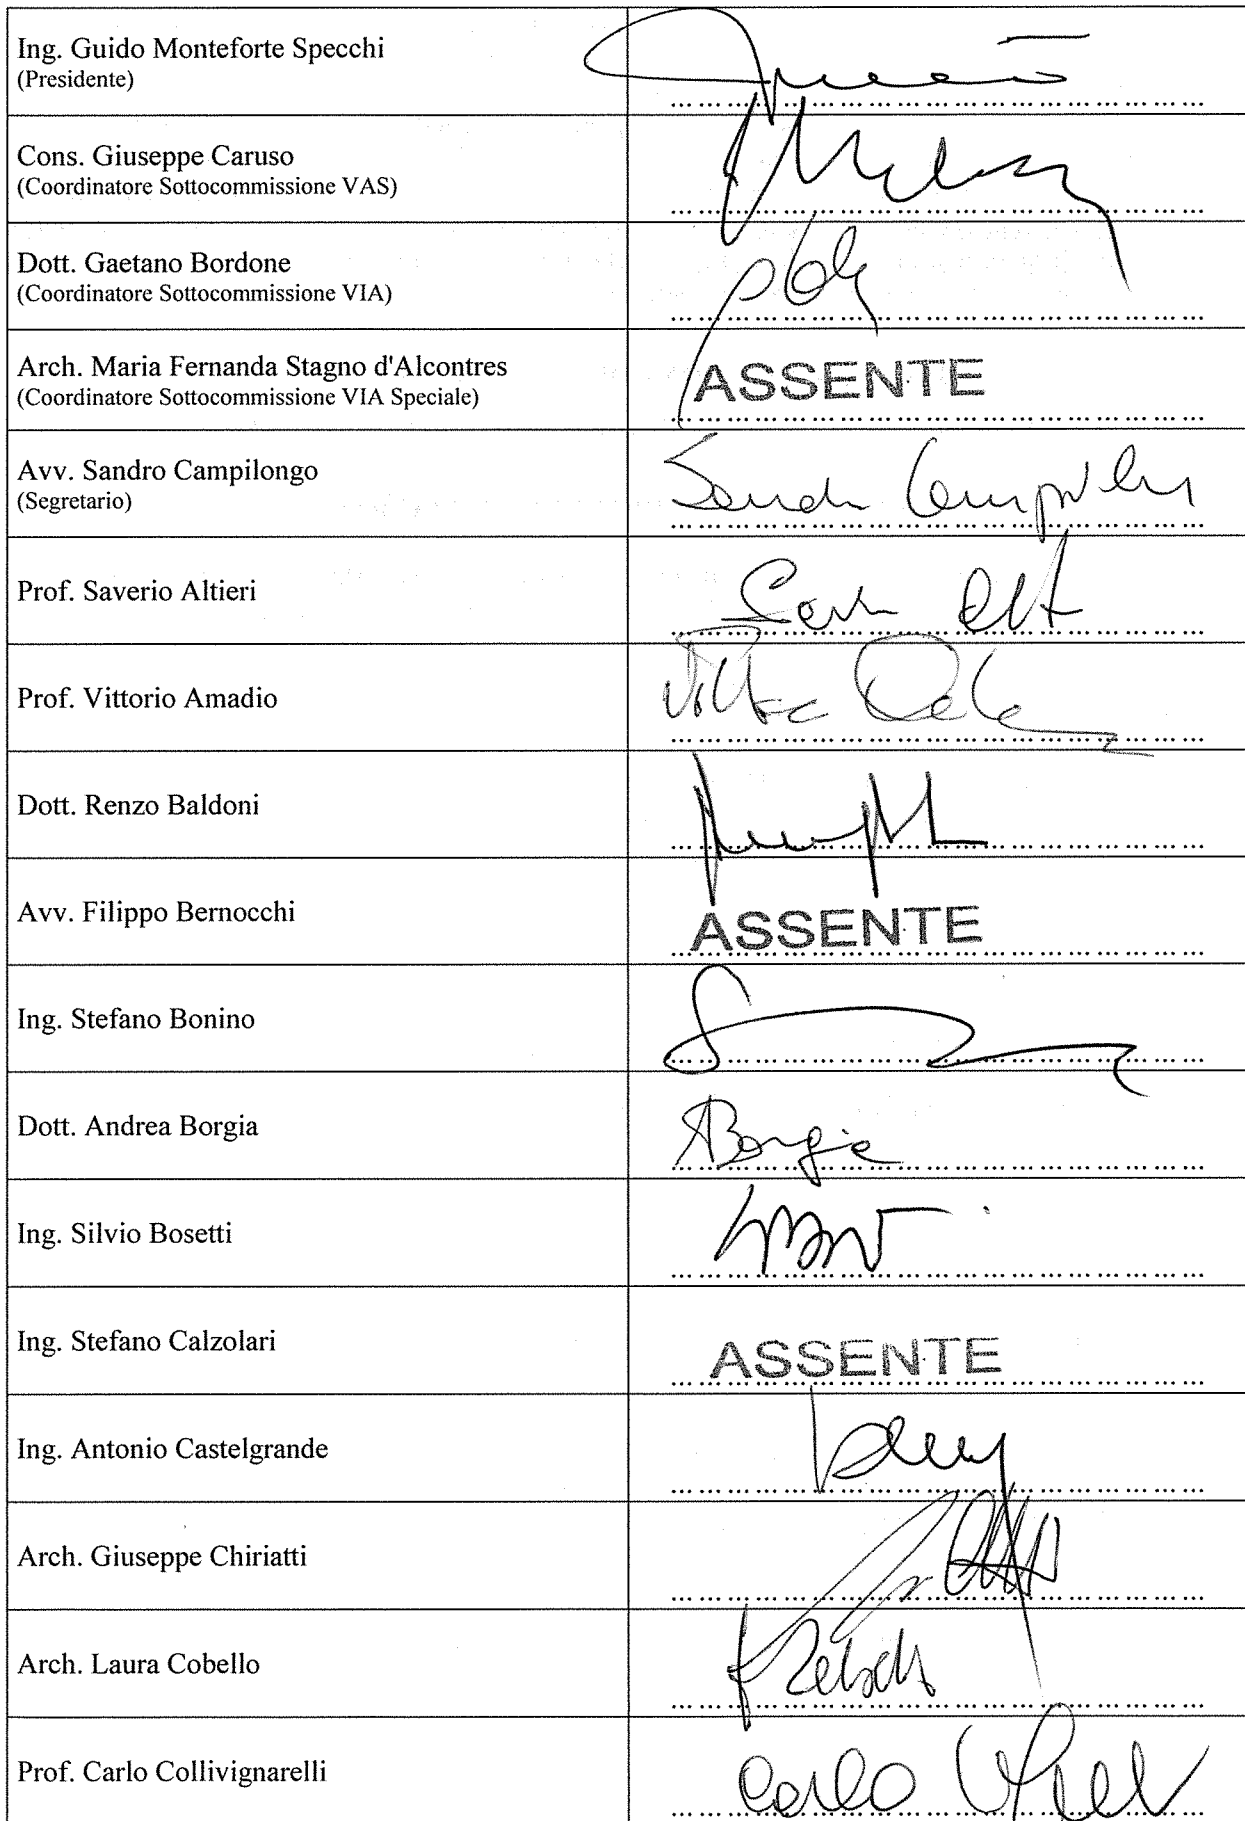 Ing. Guido Monteforte Specchi
(Presidente)
Cons. Giuseppe Caruso
(Coordinatore Sottocommissione VAS)
Dott. Gaetano Bordone
(Coordinatore Sottocommissione VIA)
Arch. Maria Fernanda Stagno d'Alcontres
(Coordinatore Sottocommissione VIA Speciale)
ASSENTE
Avv. Sandro Campilongo
(Segretario)
Prof. Saverio Altieri
Prof. Vittorio Amadio
Dott. Renzo Baldoni
Avv. Filippo Bernocchi
ASSENTE
Ing. Stefano Bonino
Dott. Andrea Borgia
ABorgia
Ing. Silvio Bosetti
Ing. Stefano Calzolari
ASSENTE
Ing. Antonio Castelgrande
Arch. Giuseppe Chiriatti
Arch. Laura Cobello
Prof. Carlo Collivignarelli
Carlo